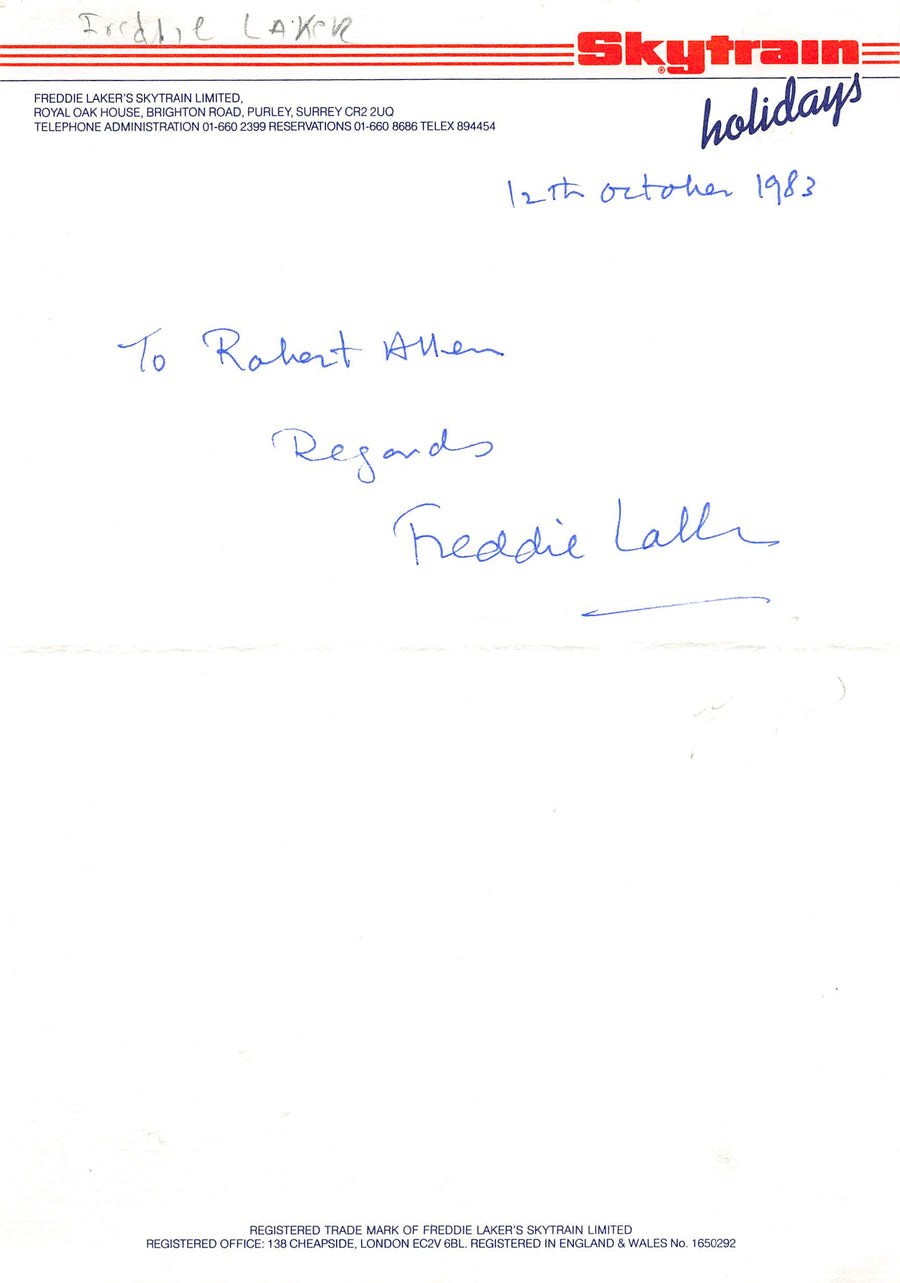 Freddie LAKER
Skytrain
holidays
FREDDIE LAKER'S SKYTRAIN LIMITED,
ROYAL OAK HOUSE, BRIGHTON ROAD, PURLEY, SURREY CR2 2UQ
TELEPHONE ADMINISTRATION 01-660 2399 RESERVATIONS 01-660 8686 TELEX 894454
12th october 1983
To Robert Allen
Regards
Freddie Laker
REGISTERED TRADE MARK OF FREDDIE LAKER'S SKYTRAIN LIMITED
REGISTERED OFFICE: 138 CHEAPSIDE, LONDON EC2V 6BL. REGISTERED IN ENGLAND & WALES No. 1650292